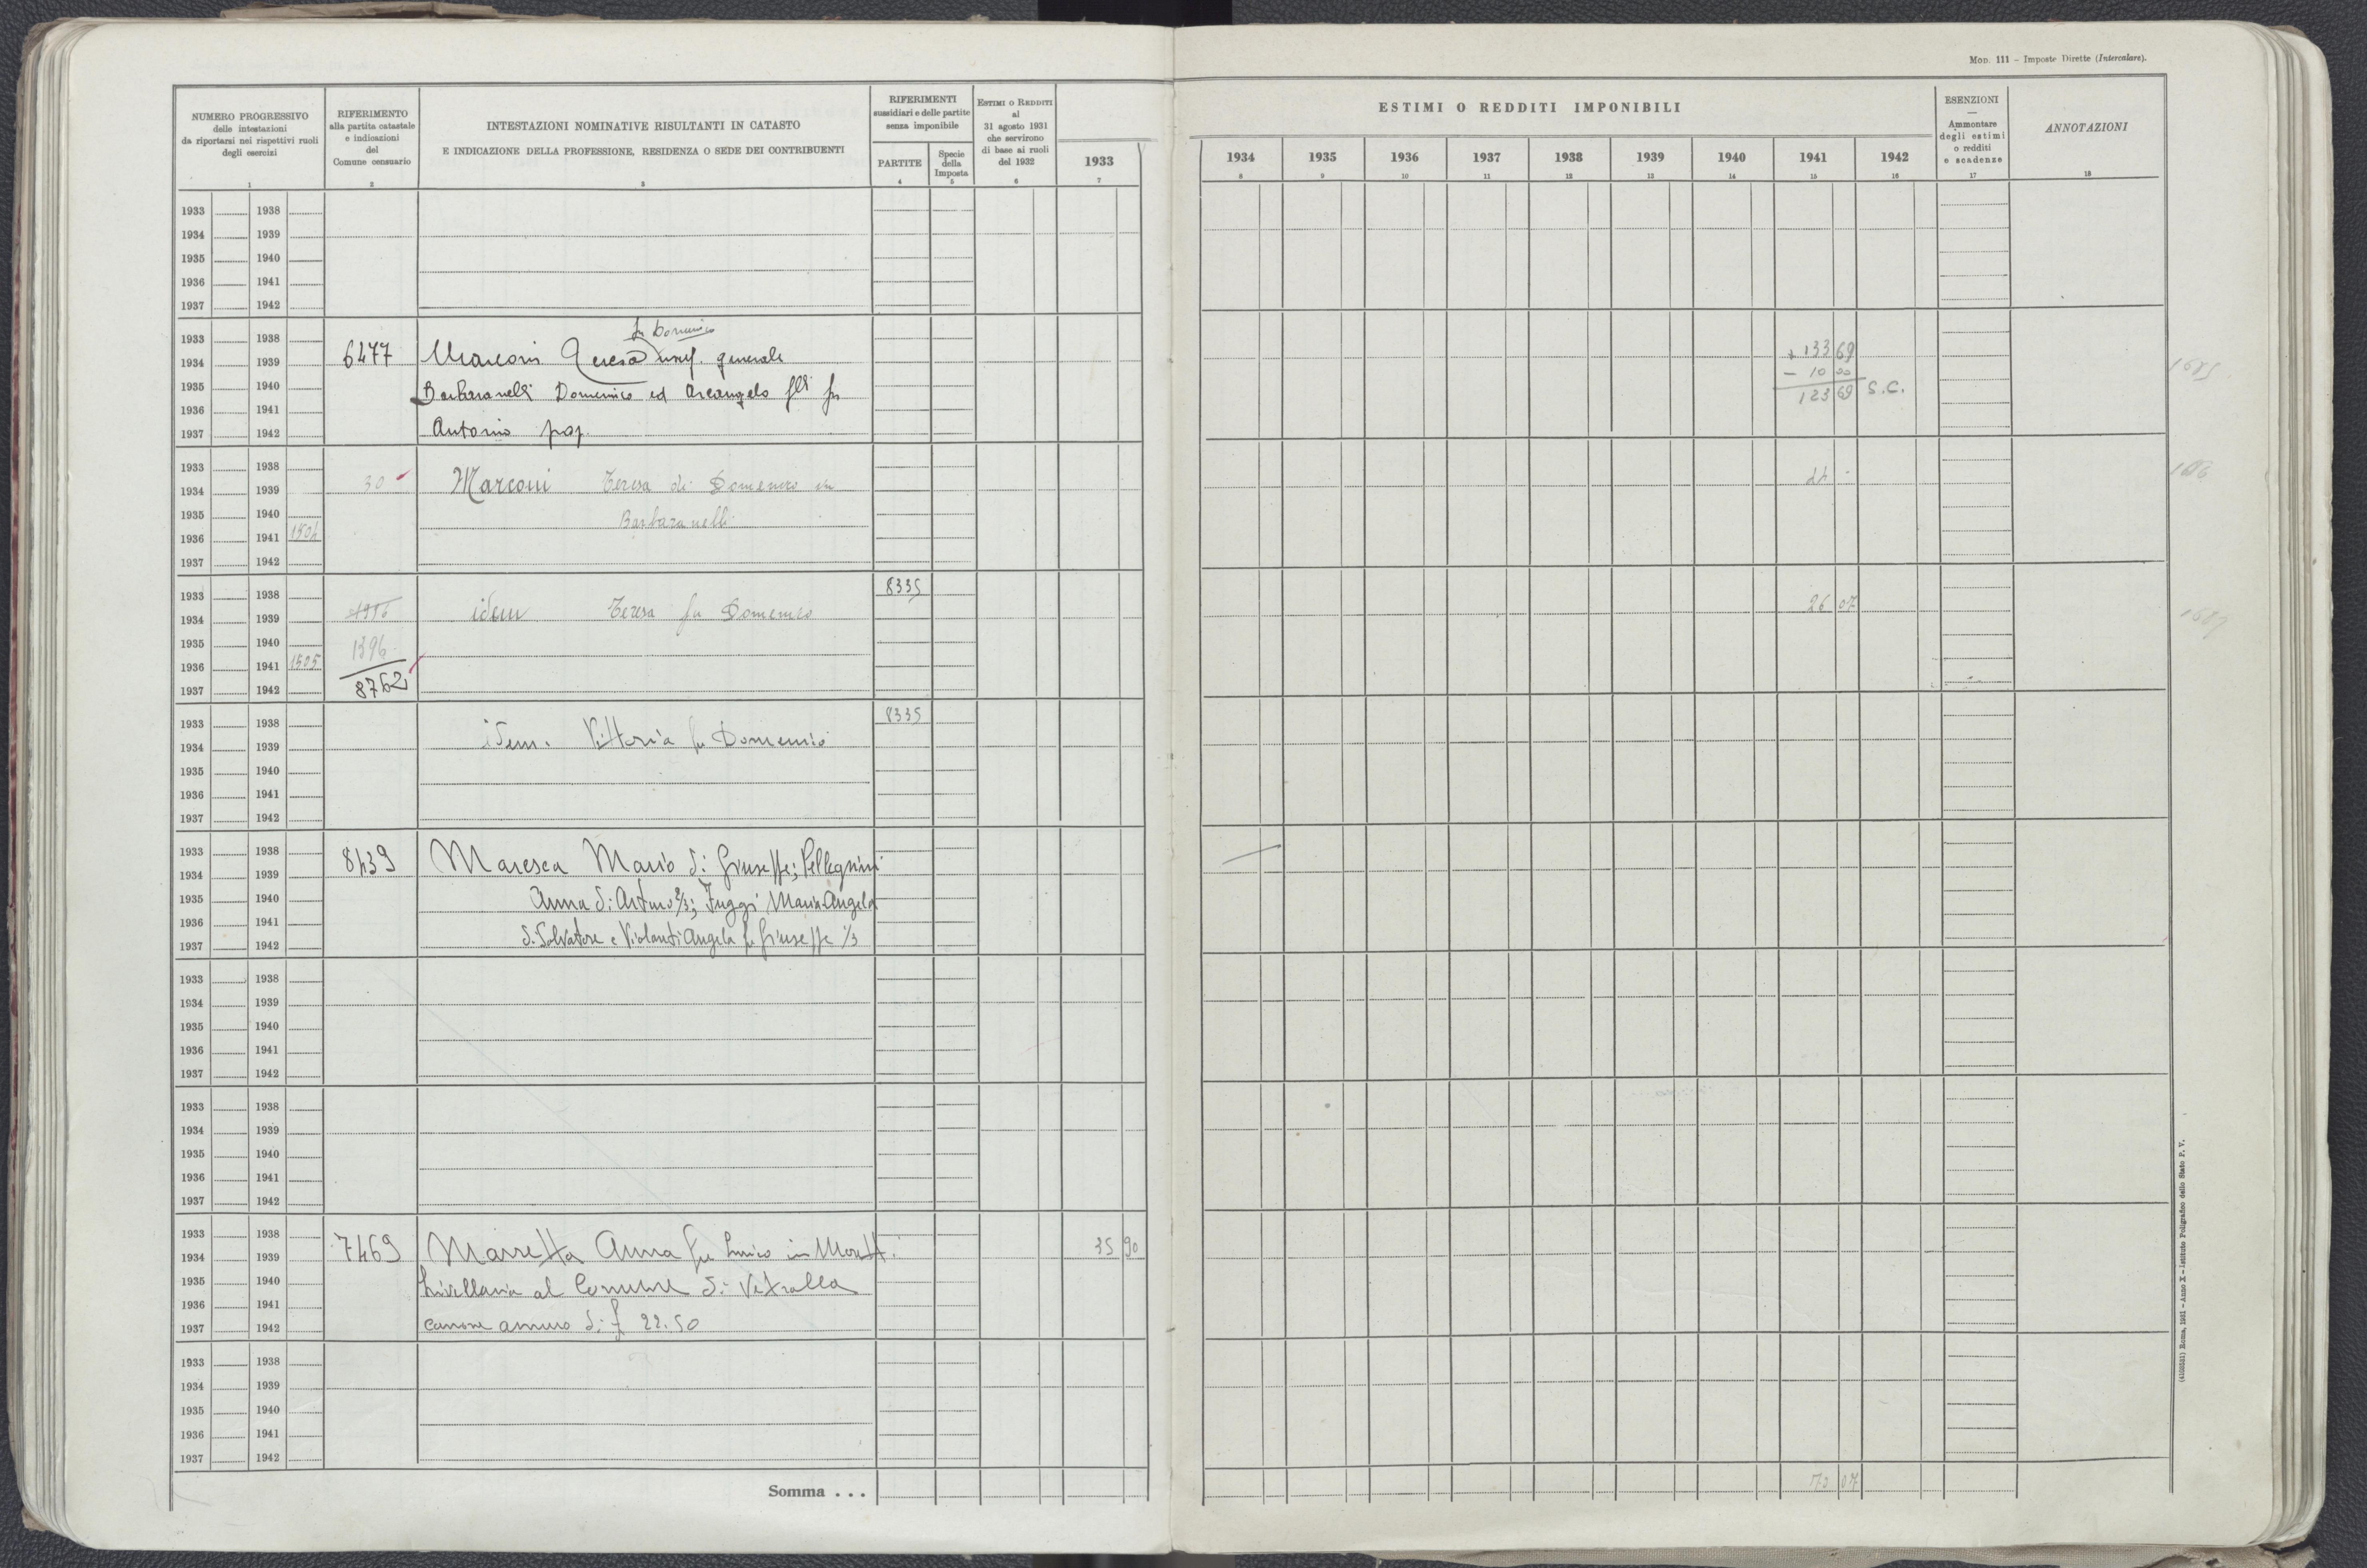 Mod. 111 - Imposte Dirette (Intercalare).
NUMERO PROGRESSIVO
delle intestazioni
da riportarsi nei rispettivi ruoli
degli esercizi
1
RIFERIMENTO
alla partita catastale
e indicazioni
del
Comune censuario
2
INTESTAZIONI NOMINATIVE RISULTANTI IN CATASTO
E INDICAZIONE DELLA PROFESSIONE, RESIDENZA O SEDE DEI CONTRIBUENTI
3
RIFERIMENTI
sussidiari e delle partite
senza imponibile
PARTITE
4
Specie
della
Imposta
5
ESTIMI O REDDITI
al
31 agosto 1931
che servirono
di base ai ruoli
del 1932
6
1933
7
ESTIMI O REDDITI IMPONIBILI
1934 1935 1936 1937 1938 1939 1940 1941 1942
8 9 10 11 12 13 14 15 16
ESENZIONI
—
Ammontare
degli estimi
o redditi
e scadenze
17
ANNOTAZIONI
18
1933 1938
1934 1939
1935 1940
1936 1941
1937 1942
fu Domenico
1933 1938
1934 1939 6477 Marconi Teresa usuf. generale + 133 69
1935 1940 Barbaranelli Domenico ed Arcangelo flli fu - 10 00
1936 1941 123 69 S.C.
1937 1942 Antonio prop.
1933 1938
1934 1939 30 Marconi Teresa di Domenico in
1935 1940 Barbaranelli
1936 1941 1504
1937 1942
1933 1938 8335
1934 1939 idem Teresa fu Domenico 26 07
1935 1940 1396
1936 1941 1505
1937 1942 8762
1933 1938 8335
1934 1939 idem. Vittoria fu Domenico
1935 1940
1936 1941
1937 1942
1933 1938 8439 Maresca Mario di Giuseppe; Pellegrini
1934 1939
1935 1940 Anna di Arturo 2/3; Fuggi Maria Angela
1936 1941
1937 1942 di Salvatore e Violanti Angela fu Giuseppe 1/3
1933 1938
1934 1939
1935 1940
1936 1941
1937 1942
1933 1938
1934 1939
1935 1940
1936 1941
1937 1942
1933 1938
1934 1939 7469 Anna fu in 35 90
1935 1940 Livellaria al Comune di Vetralla
1936 1941
1937 1942 canone annuo di £ 22.50
1933 1938
1934 1939
1935 1940
1936 1941
1937 1942
Somma . . . 73 07
(4103531) Roma, 1931 - Anno X - Istituto Poligrafico dello Stato P. V.